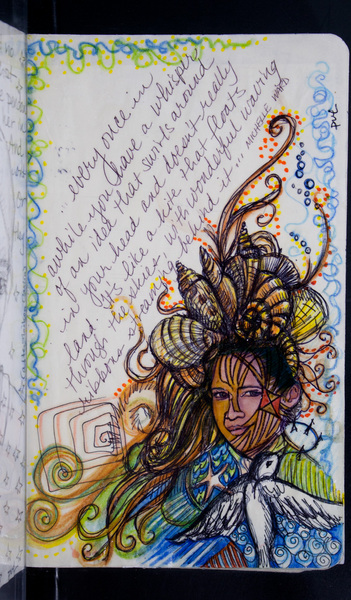 every once in
awhile you have a whisper
of an idea that swirls around
in your head and doesn't really
land. It's like a kite that floats
through the quiet with wonderful waving
ribbons streaming behind it...
MICHELLE WARD